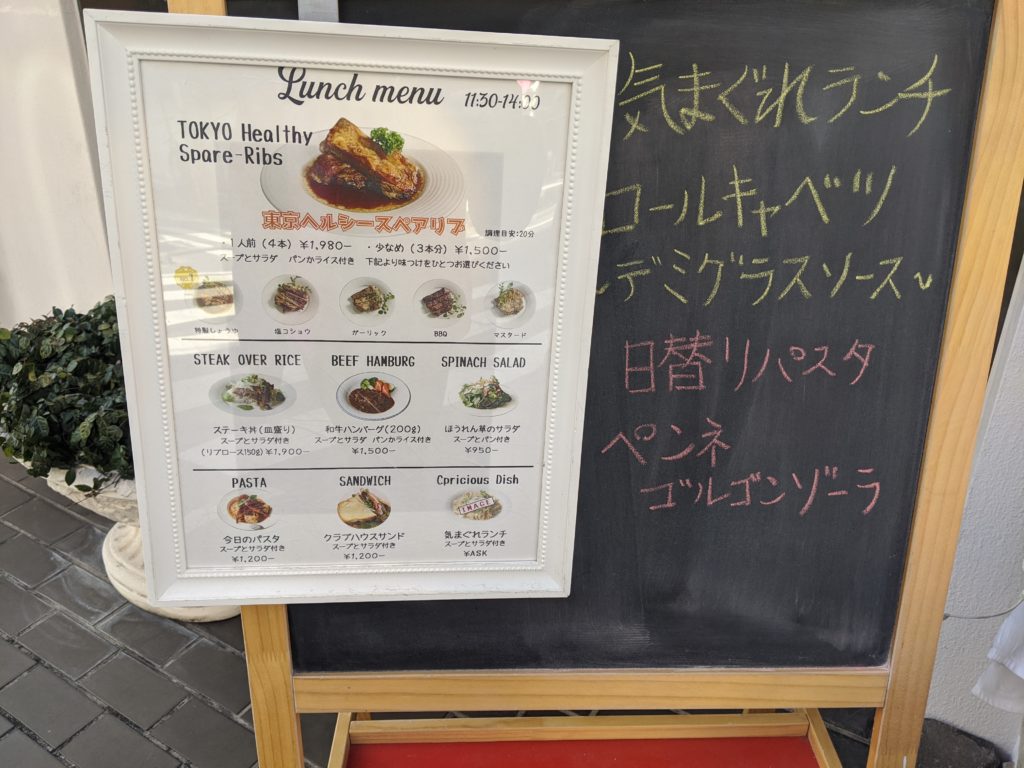 Lunch menu 11:30-14:00
TOKYO Healthy
Spare-Ribs
東京ヘルシースペアリブ
調理目安:20分
・1人前(4本)¥1,980- ・少なめ(3本分)¥1,500-
スープとサラダ パンかライス付き 下記より味つけをひとつお選びください
特製しょうゆ 塩コショウ ガーリック BBQ マスタード
STEAK OVER RICE BEEF HAMBURG SPINACH SALAD
ステーキ丼(皿盛り) 和牛ハンバーグ(200g) ほうれん草のサラダ
スープとサラダ付き スープとサラダ パンかライス付き スープとパン付き
(リブロース150g)¥1,900- ¥1,500- ¥950-
PASTA SANDWICH Cpricious Dish
IMAGE
今日のパスタ クラブハウスサンド 気まぐれランチ
スープとサラダ付き スープとサラダ付き スープとサラダ付き
¥1,200- ¥1,200- ¥ASK
気まぐれランチ
ロールキャベツ
~デミグラスソース~
日替りパスタ
ペンネ
ゴルゴンゾーラ